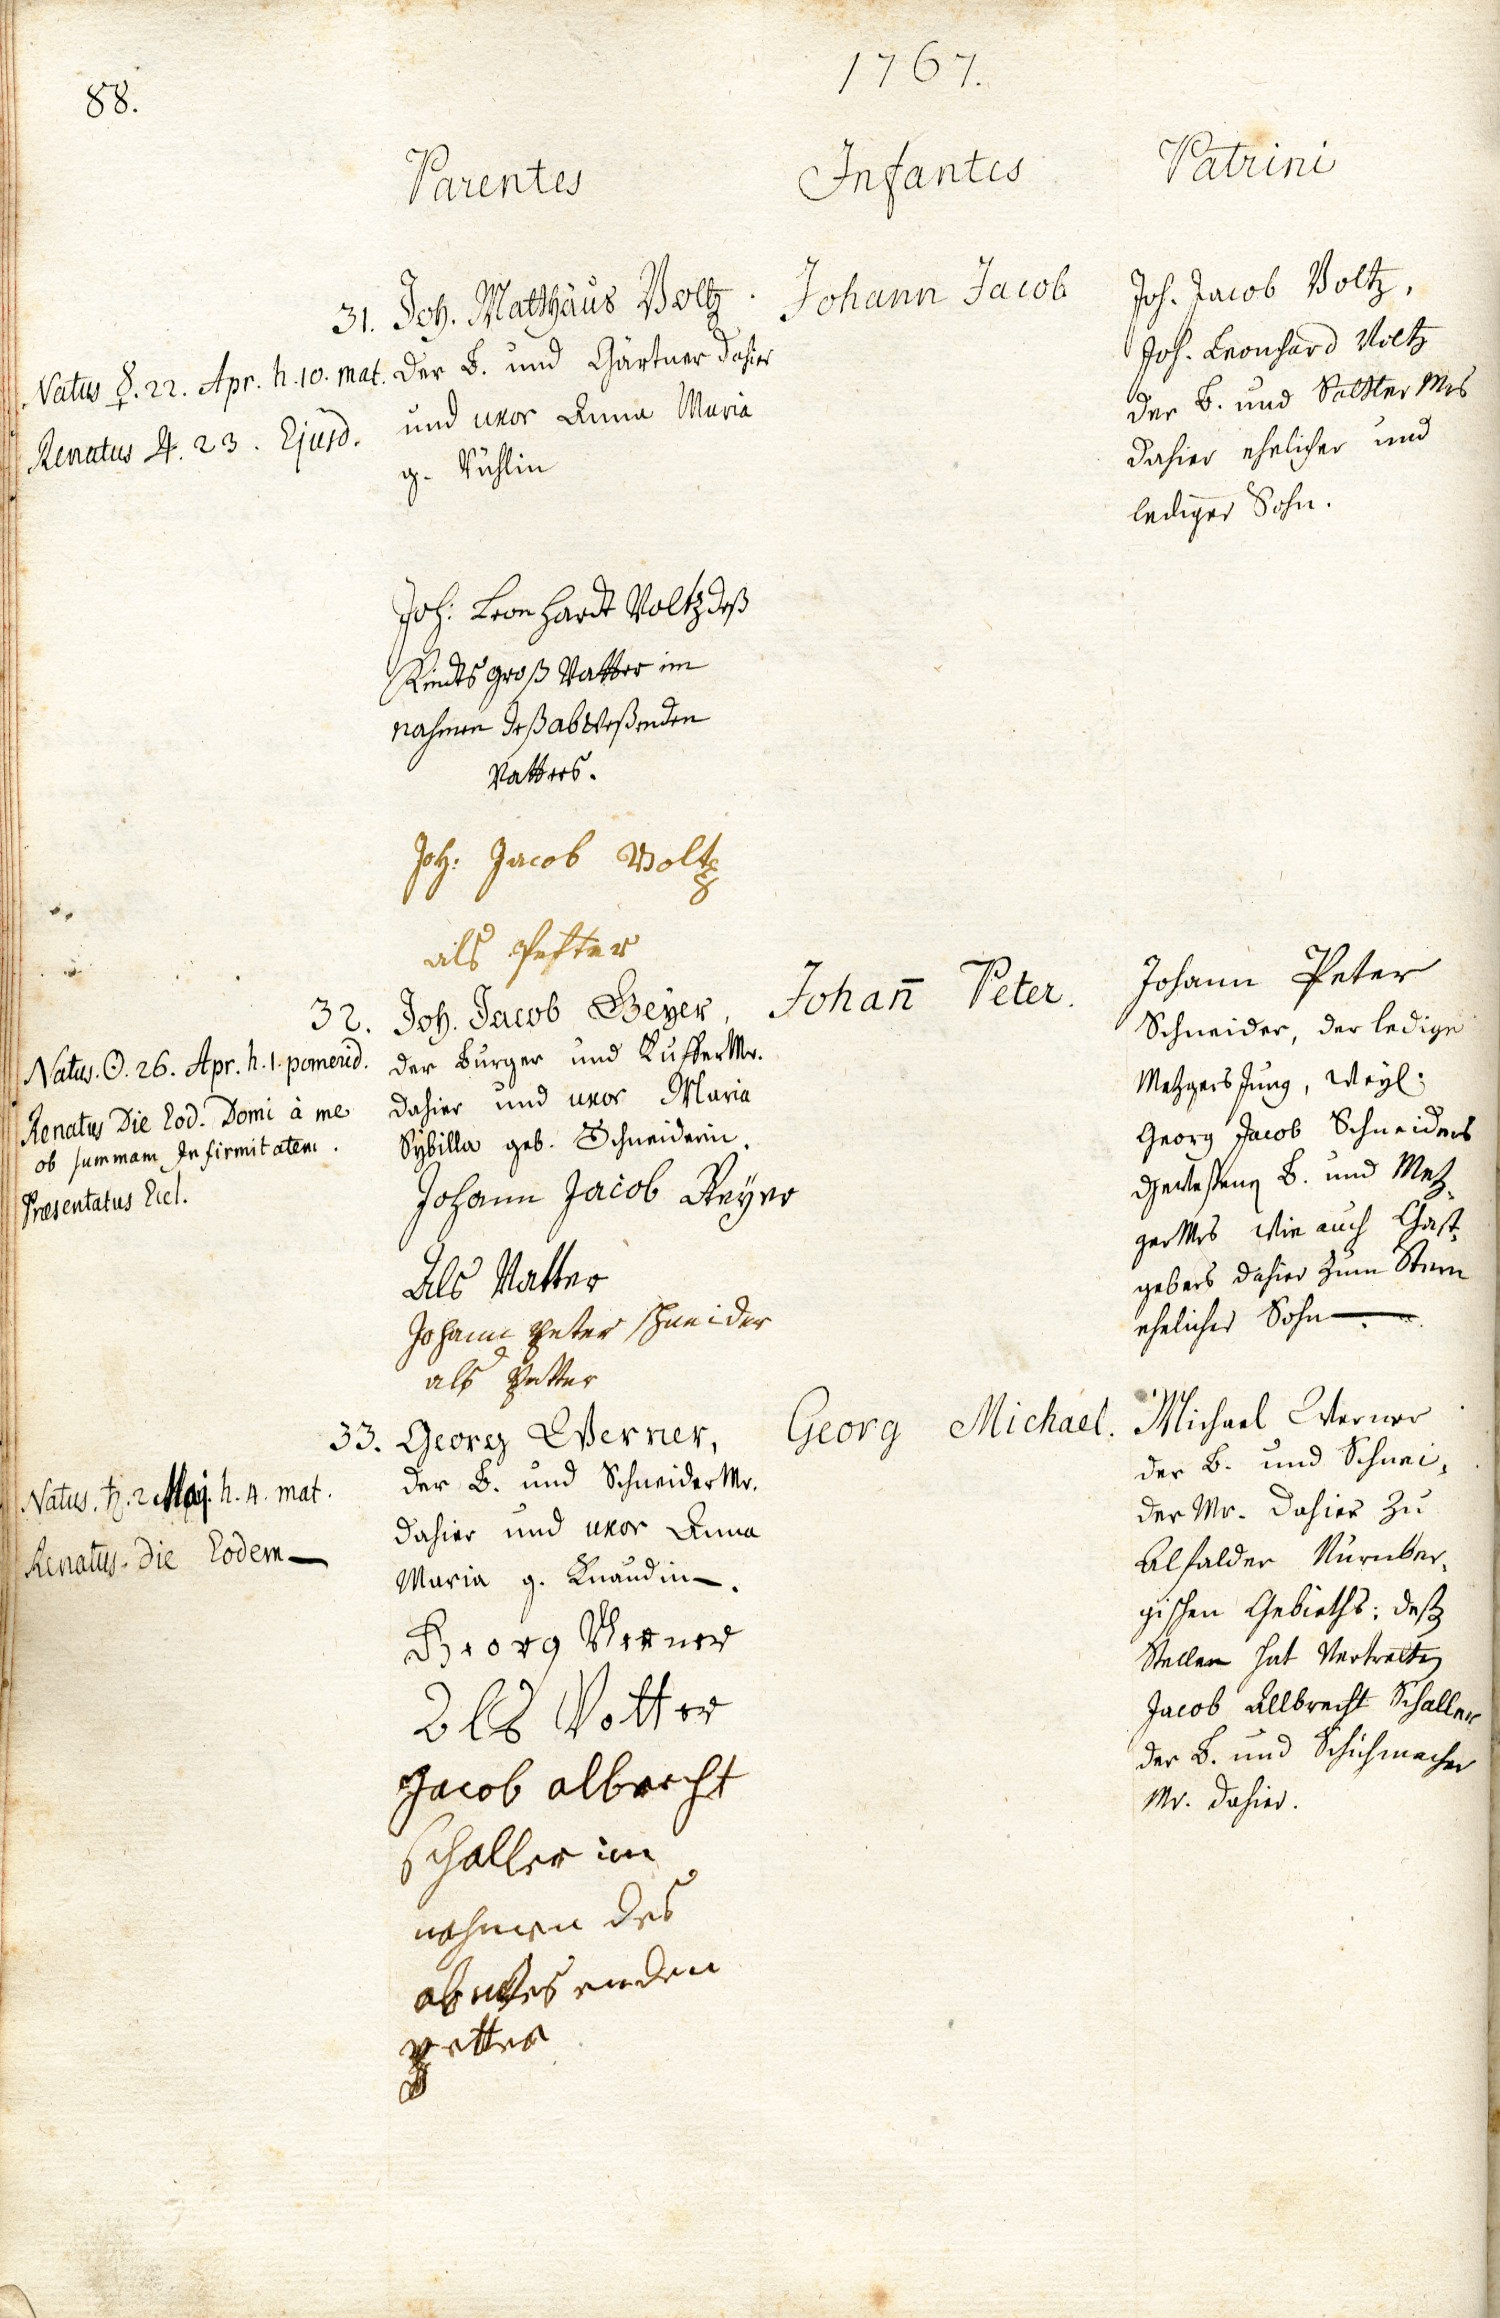 88.
1767.
Parentes
Infantes
Patrini
31.
Natus ☿. 22. Apr. h. 10. mat.
Renatus ♃. 23. Ejusd.
Joh. Matthäus Voltz.
der B. und Gärtner dahier
und uxor Anna Maria
g.
Johann Jacob
Joh. Jacob Voltz,
Joh. Leonhard Voltz
der B. und Sattler Mrs
dahier ehelicher und
lediger Sohn.
Joh: Leonhardt Voltz deß
Kindts groß Vatter im
nahmen deß abweßenden
Vatters.
Joh: Jacob Voltz
als Petter
32.
Natus. ☉. 26. Apr. h. 1. pomerid.
Renatus Die Eod. Domi à me
ob summam Infirmitatem.
Præsentatus Eccl.
Joh. Jacob Beyer,
der Burger und Kuffer Mr.
dahier und uxor Maria
Sybilla geb. Schneiderin.
Johann Jacob Beyer
Als Vatter
Johann Peter schneider
als Petter
Johan̄ Peter.
Johann Peter
Schneider, der ledige
Metzgers Jung, weyl.
Georg Jacob Schneiders
geweßenen B. und Metz-
ger Mrs wie auch Gast-
gebers dahier zum Stern
ehelicher Sohn—.—
33.
Natus. ♄. 2. Maij. h. 4. mat.
Renatus. die Eodem—
Georg Werner,
der B. und Schneider Mr.
dahier und uxor Anna
Maria g. Knaudin—.
Georg Werner
Als Vatter
Jacob albrecht
schaller im
nahmen des
abwesenden
petter
Georg Michael.
Michael Werner
der B. und Schnei-
der Mr. dahier zu
Nürnber-
gischen Gebieths; deß
Stellen hat vertretten
Jacob Albrecht Schaller
der B. und Schuhmacher
Mr. dahier.